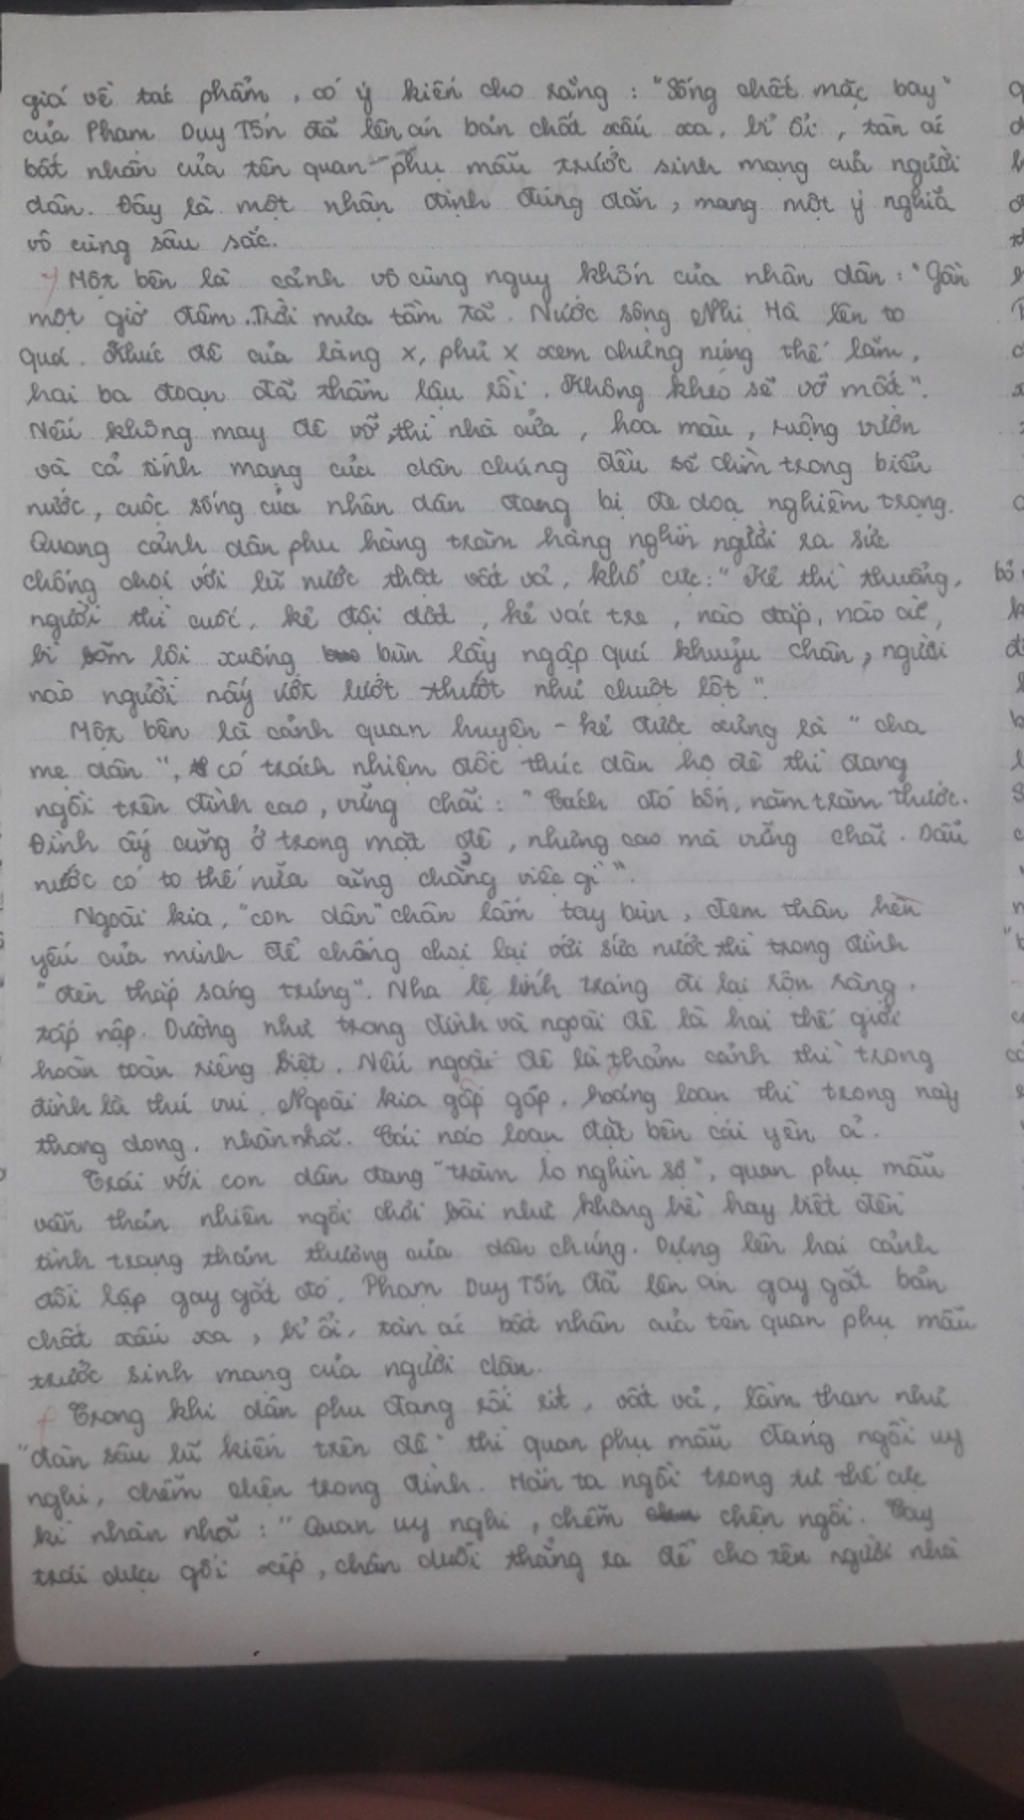 giá về tác phẩm, có ý kiến cho rằng: "Sống chết mặc bay"
của Phạm Duy Tốn đã lên án bản chất xấu xa, bỉ ổi, tàn ác
bất nhân của tên quan phụ mẫu trước sinh mạng của người
dân. Đây là một nhận định đúng đắn, mang một ý nghĩa
vô cùng sâu sắc.
Một bên là cảnh vô cùng nguy khốn của nhân dân: "Gần
một giờ đêm. Trời mưa tầm tã. Nước sông Nhị Hà lên to
quá. Khúc đê của làng X, phủ X xem chừng núng thế lắm,
hai ba đoạn đã thẩm lậu rồi. Không khéo sẽ vỡ mất".
Nếu không may đê vỡ, thì nhà cửa, hoa màu, ruộng vườn
và cả tính mạng của dân chúng đều sẽ chìm trong biển
nước, cuộc sống của nhân dân đang bị đe doạ nghiêm trọng.
Quang cảnh dân phu hàng trăm hàng nghìn người ra sức
chống chọi với lũ nước thật vất vả, khổ cực: "Kẻ thì thuổng,
người thì cuốc, kẻ đội đất, kẻ vác tre, nào đắp, nào cừ,
bì bõm lội xuống bùn lầy ngập quá khuỷu chân, người
nào người nấy ướt lướt thướt như chuột lột".
Một bên là cảnh quan huyện - kẻ được xưng là "cha
mẹ dân", có trách nhiệm đốc thúc dân hộ đê thì đang
ngồi trên đình cao, vững chãi: "Cách đó bốn, năm trăm thước.
Đình ấy cũng ở trong mặt đê, nhưng cao mà vững chãi. Dẫu
nước có to thế nữa cũng chẳng việc gì".
Ngoài kia, "con dân" chân lấm tay bùn, đem thân hèn
yếu của mình để chống chọi lại với sức nước thì trong đình
"đèn thắp sáng trưng". Nha lệ lính tráng đi lại rộn ràng,
tấp nập. Dường như trong đình và ngoài đê là hai thế giới
hoàn toàn riêng biệt. Nếu ngoài đê là thảm cảnh thì trong
đình là thú vui. Ngoài kia gấp gáp, hoảng loạn thì trong này
thong dong, nhàn nhã. Cái náo loạn đặt bên cái yên ả.
Trái với con dân đang "trăm lo nghìn sợ", quan phụ mẫu
vẫn thản nhiên ngồi chơi bài như không hề hay biết đến
tình trạng thảm thương của dân chúng. Dựng lên hai cảnh
đối lập gay gắt đó, Phạm Duy Tốn đã lên án gay gắt bản
chất xấu xa, bỉ ổi, tàn ác bất nhân của tên quan phụ mẫu
trước sinh mạng của người dân.
Trong khi dân phu đang rối rít, vất vả, lầm than như
"đàn sâu lũ kiến trên đê" thì quan phụ mẫu đang ngồi uy
nghi, chễm chện trong đình. Hắn ta ngồi trong tư thế cực
kì nhàn nhã: "Quan uy nghi, chễm chện ngồi. Tay
trái dựa gối xếp, chân duỗi thẳng ra để cho tên người nhà